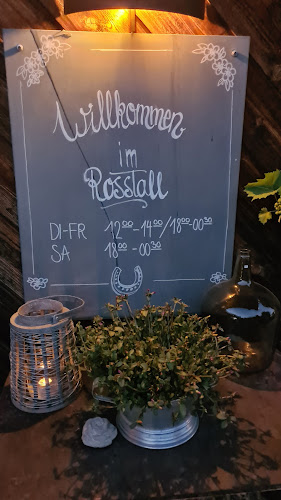 Willkommen
im
Rosstall
DI-FR 12⁰⁰-14⁰⁰/18⁰⁰-00³⁰
SA 18⁰⁰-00³⁰